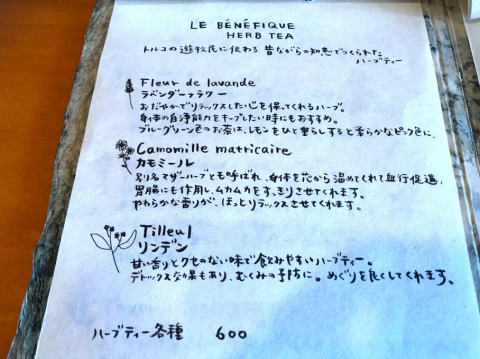 LE BÉNÉFIQUE
HERB TEA
トルコの遊牧民に伝わる 昔ながらの知恵でつくられた
ハーブティー
Fleur de lavande
ラベンダーフラワー
おだやかでリラックスしたい心を保ってくれるハーブ。
身体の自浄能力をキープしたい時にもおすすめ。
ブルーグリーン色のお茶は、レモンをひと垂らしすると柔らかなピンク色に。
Camomille matricaire
カモミール
別名マザーハーブとも呼ばれ、身体を芯から温めてくれて血行促進。
胃腸にも作用し、ムカムカをすっきりさせてくれます。
やわらかな香りが、ほっとリラックスさせてくれます。
Tilleul
リンデン
甘い香りとクセのない味で飲みやすいハーブティー。
デトックス効果もあり、むくみの予防に。めぐりを良くしてくれます。
ハーブティー各種 600